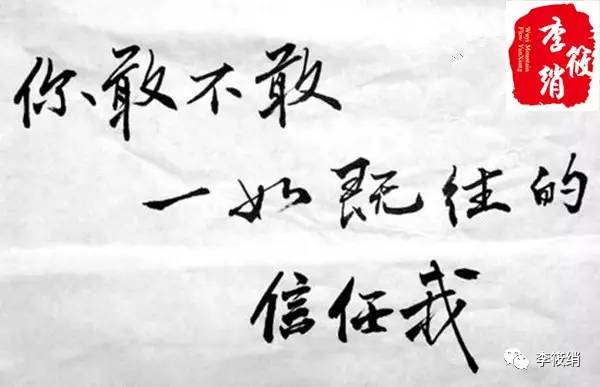 你敢不敢
一如既往的
信任我
李筱绡
Wuyi Mountain
李筱绡